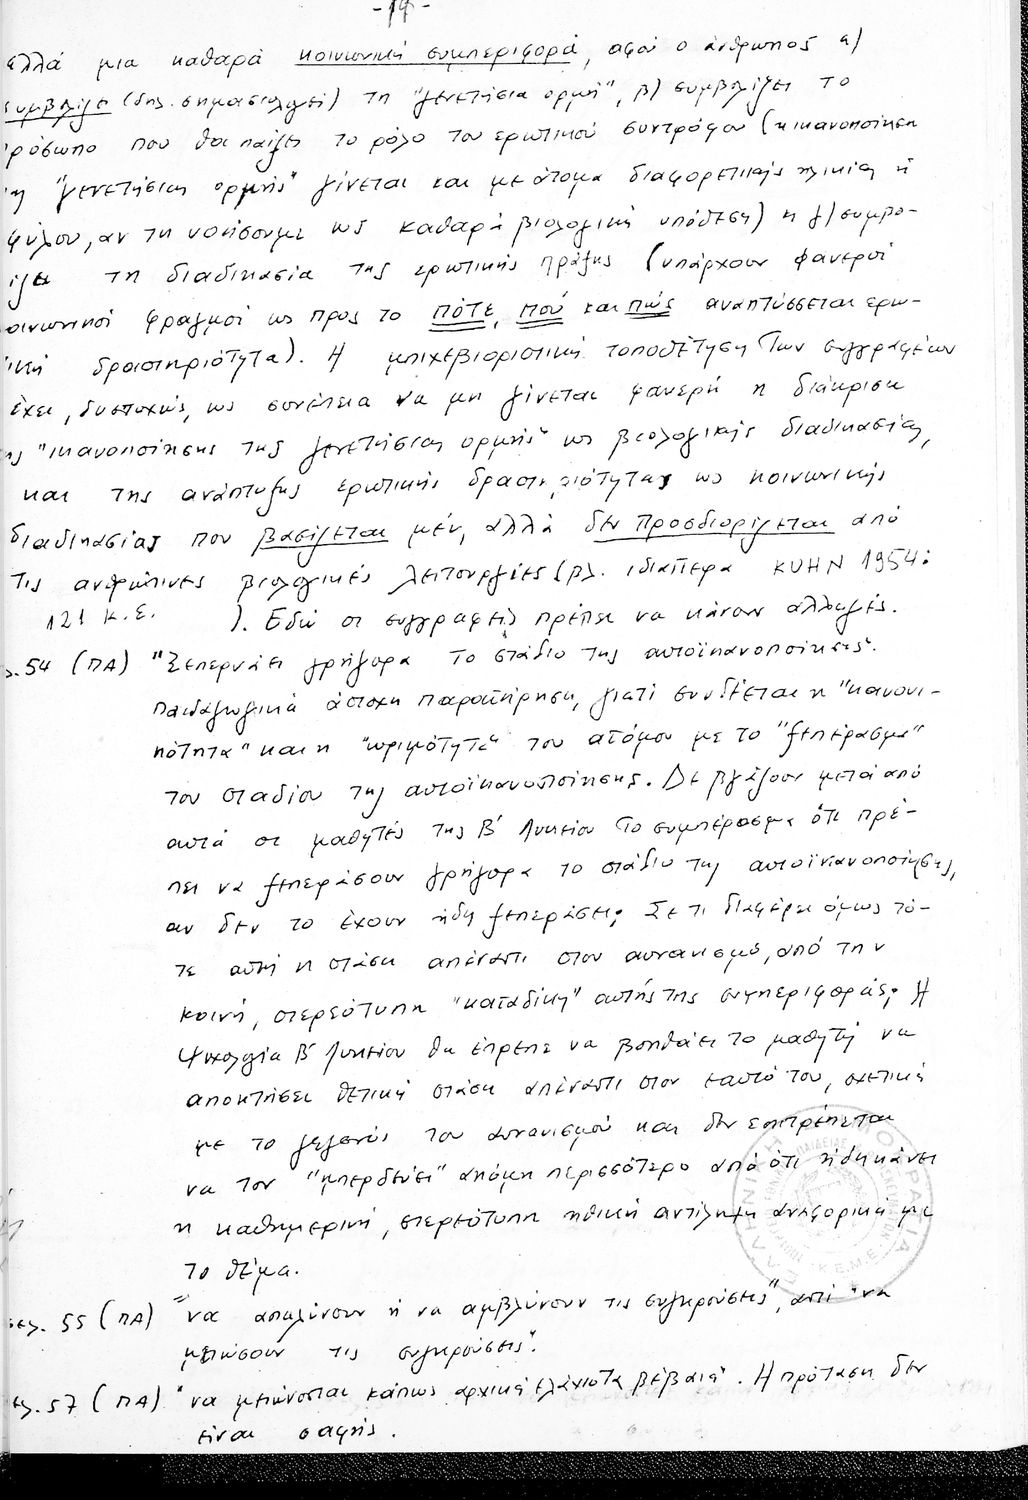 -14-
αλλά μια καθαρά κοινωνική συμπεριφορά, αφού ο άνθρωπος α)
συμβολίζει (δηλ. σημασιολογεί) τη "γενετήσια ορμή", β) συμβολίζει το
ρόσωπο που θα παίξει το ρόλο του ερωτικού συντρόφου (η ικανοποίηση
ης "γενετήσιας ορμής" γίνεται και με άτομα διαφορετικής ηλικίας ή
φύλου, αν τη νοήσουμε ως καθαρά βιολογική υπόθεση) η γ) συμβο-
ίζει τη διαδικασία της ερωτικής πράξης (υπάρχουν φανεροί
οινωνικοί φραγμοί ως προς το πότε, πού και πώς αναπτύσσεται ερω-
ική δραστηριότητα). Η μπιχεβιοριστική τοποθέτηση των συγγραφέων
έχει, δυστυχώς, ως συνέπεια να μη γίνεται φανερή η διάκριση
ης "ικανοποίησης της γενετήσιας ορμής" ως βιολογικής διαδικασίας,
και της ανάπτυξης ερωτικής δραστηριότητας ως κοινωνικής
διαδικασίας που βασίζεται μέν, αλλά δεν προσδιορίζεται από
τις ανθρώπινες βιολογικές λειτουργίες (βλ. ιδιαίτερα KUHN 1954:
121 κ.ε. ). Εδώ οι συγγραφείς πρέπει να κάνουν αλλαγές.
σ. 54 (ΠΑ) "Ξεπερνάει γρήγορα το στάδιο της αυτοϊκανοποίησης".
Παιδαγωγικά άστοχη παρατήρηση, γιατί συνδέεται η "κανονι-
κότητα" και η "ωριμότητα" του ατόμου με το "ξεπέρασμα"
του σταδίου της αυτοϊκανοποίησης. Δε βγάζουν μετά από
αυτά οι μαθητές της Β΄ Λυκείου το συμπέρασμα ότι πρέ-
πει να ξεπεράσουν γρήγορα το στάδιο της αυτοϊκανοποίησης,
αν δεν το έχουν ήδη ξεπεράσει; Σε τι διαφέρει όμως τό-
τε αυτή η στάση απέναντι στον αυνανισμό, από την
κοινή, στερεότυπη "καταδίκη" αυτής της συμπεριφοράς; Η
Ψυχολογία Β΄ Λυκείου θα έπρεπε να βοηθάει το μαθητή να
αποκτήσει θετική στάση απέναντι στον εαυτό του, σχετικά
με το γεγονός του αυνανισμού και δεν επιτρέπεται
να τον "μπερδεύει" ακόμη περισσότερο από ότι ήδη κάνει
η καθημερινή, στερεότυπη ηθική αντίληψη αναφορικά με
το θέμα.
σελ. 55 (ΠΑ) "να απαλύνουν ή να αμβλύνουν τις συγκρούσεις", αντί "να
μειώσουν τις συγκρούσεις".
ελ. 57 (ΠΑ) "να μειώνεται κάπως αρχικά ελάχιστα βέβαια". Η πρόταση δεν
είναι σαφής.